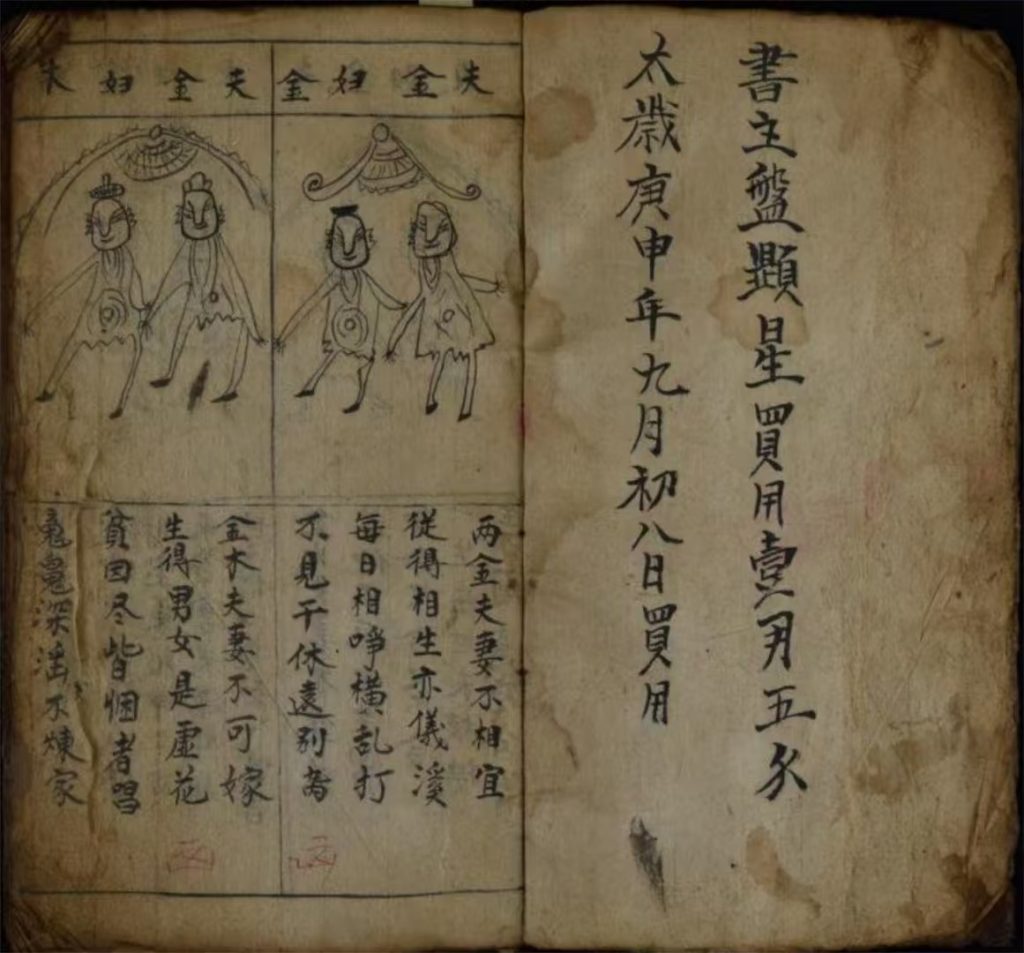 書主盤顕星買用壹角五分
太歲庚申年九月初八日買用
夫金妇金
兩金夫妻不相宜
從得相生亦儀溪
每日相橫乱打
不見干休遠别為
凶
夫金妇木
金木夫妻不可嫁
生得男女是虛花
貧囙尽皆個者習
深滛不煉家
凶